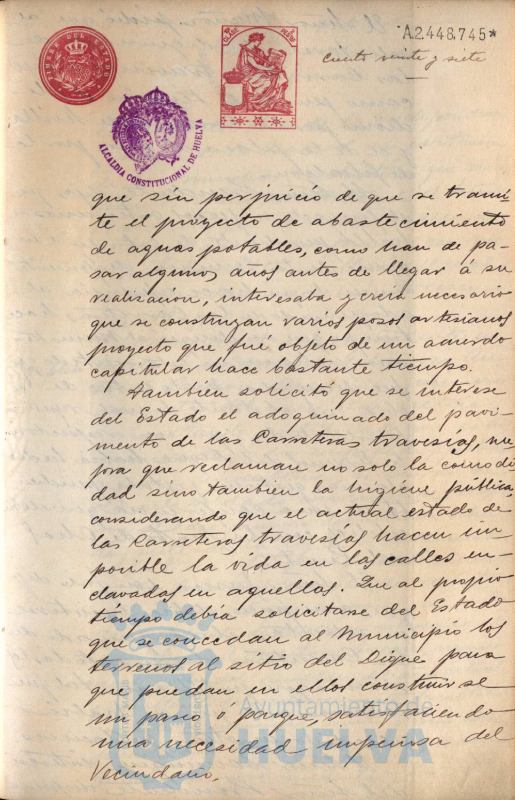 A2.448.745*
TIMBRE DEL ESTADO
CLASE
ciento veinte y siete
ALCALDIA CONSTITUCIONAL DE HUELVA
que sin perjuicio de que se trami
te el proyecto de abastecimiento
de aguas potables, como han de pa-
sar algunos años antes de llegar á su
realizacion, interesaba y creia necesario
que se construyan varios pozos artesianos
proyecto que fué objeto de un acuerdo
capitular hace bastante tiempo.
Tambien solicitó que se interese
del Estado el adoquinado del pavi-
mento de las Carreteras travesías, me-
jora que reclaman no solo la comodi
dad sino tambien la higiene pública,
considerando que el actual estado de
las Carreteras travesías hacen im-
posible la vida en las calles en-
clavadas en aquellas. Que al propio
tiempo debía solicitarse del Estado
que se concedan al Municipio los
terrenos al sitio del Dique para
que puedan en ellos construirse
un paseo ó parque, satisfaciendo
una necesidad imperiosa del
Vecindario.
Ayuntamiento de
HUELVA